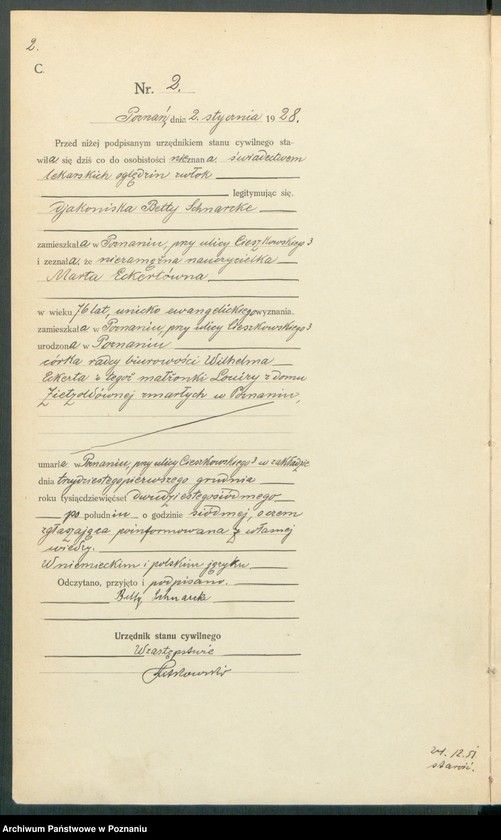 2.
C.
Nr. 2.
Poznań, dnia 2. stycznia 1928.
Przed niżej podpisanym urzędnikiem stanu cywilnego sta-
wiła się dziś co do osobistości nieznana, świadectwem
lekarskich oględzin zwłok
legitymując się.
djakoniska Betty Schnarcke
zamieszkała w Poznaniu, przy ulicy Cieszkowskiego 3
i zeznała, że niezamężna nauczycielka
Marta Eckertówna
w wieku 76 lat, unicko ewangelickiego wyznania.
zamieszkała w Poznaniu, przy ulicy Cieszkowskiego 3
urodzona w Poznaniu
córka radcy biurowości Wilhelma
Eckerta i tegoż małżonki Louizy z domu
Zietzoldównej zmarłych w Poznaniu,
umarła w Poznaniu, przy ulicy Cieszkowskiego 3 w zakładzie
dnia trzydziestego pierwszego grudnia
roku tysiącdziewięćset dwudziestegosiódmego
po południu o godzinie siódmej, o czem
zgłaszająca poinformowana z własnej
wiedzy.
W niemieckim i polskim języku
Odczytano, przyjęto i podpisano.
Betty Schnarcke
Urzędnik stanu cywilnego
W zastępstwie
24. 12. 51
starość.
Archiwum Państwowe w Poznaniu